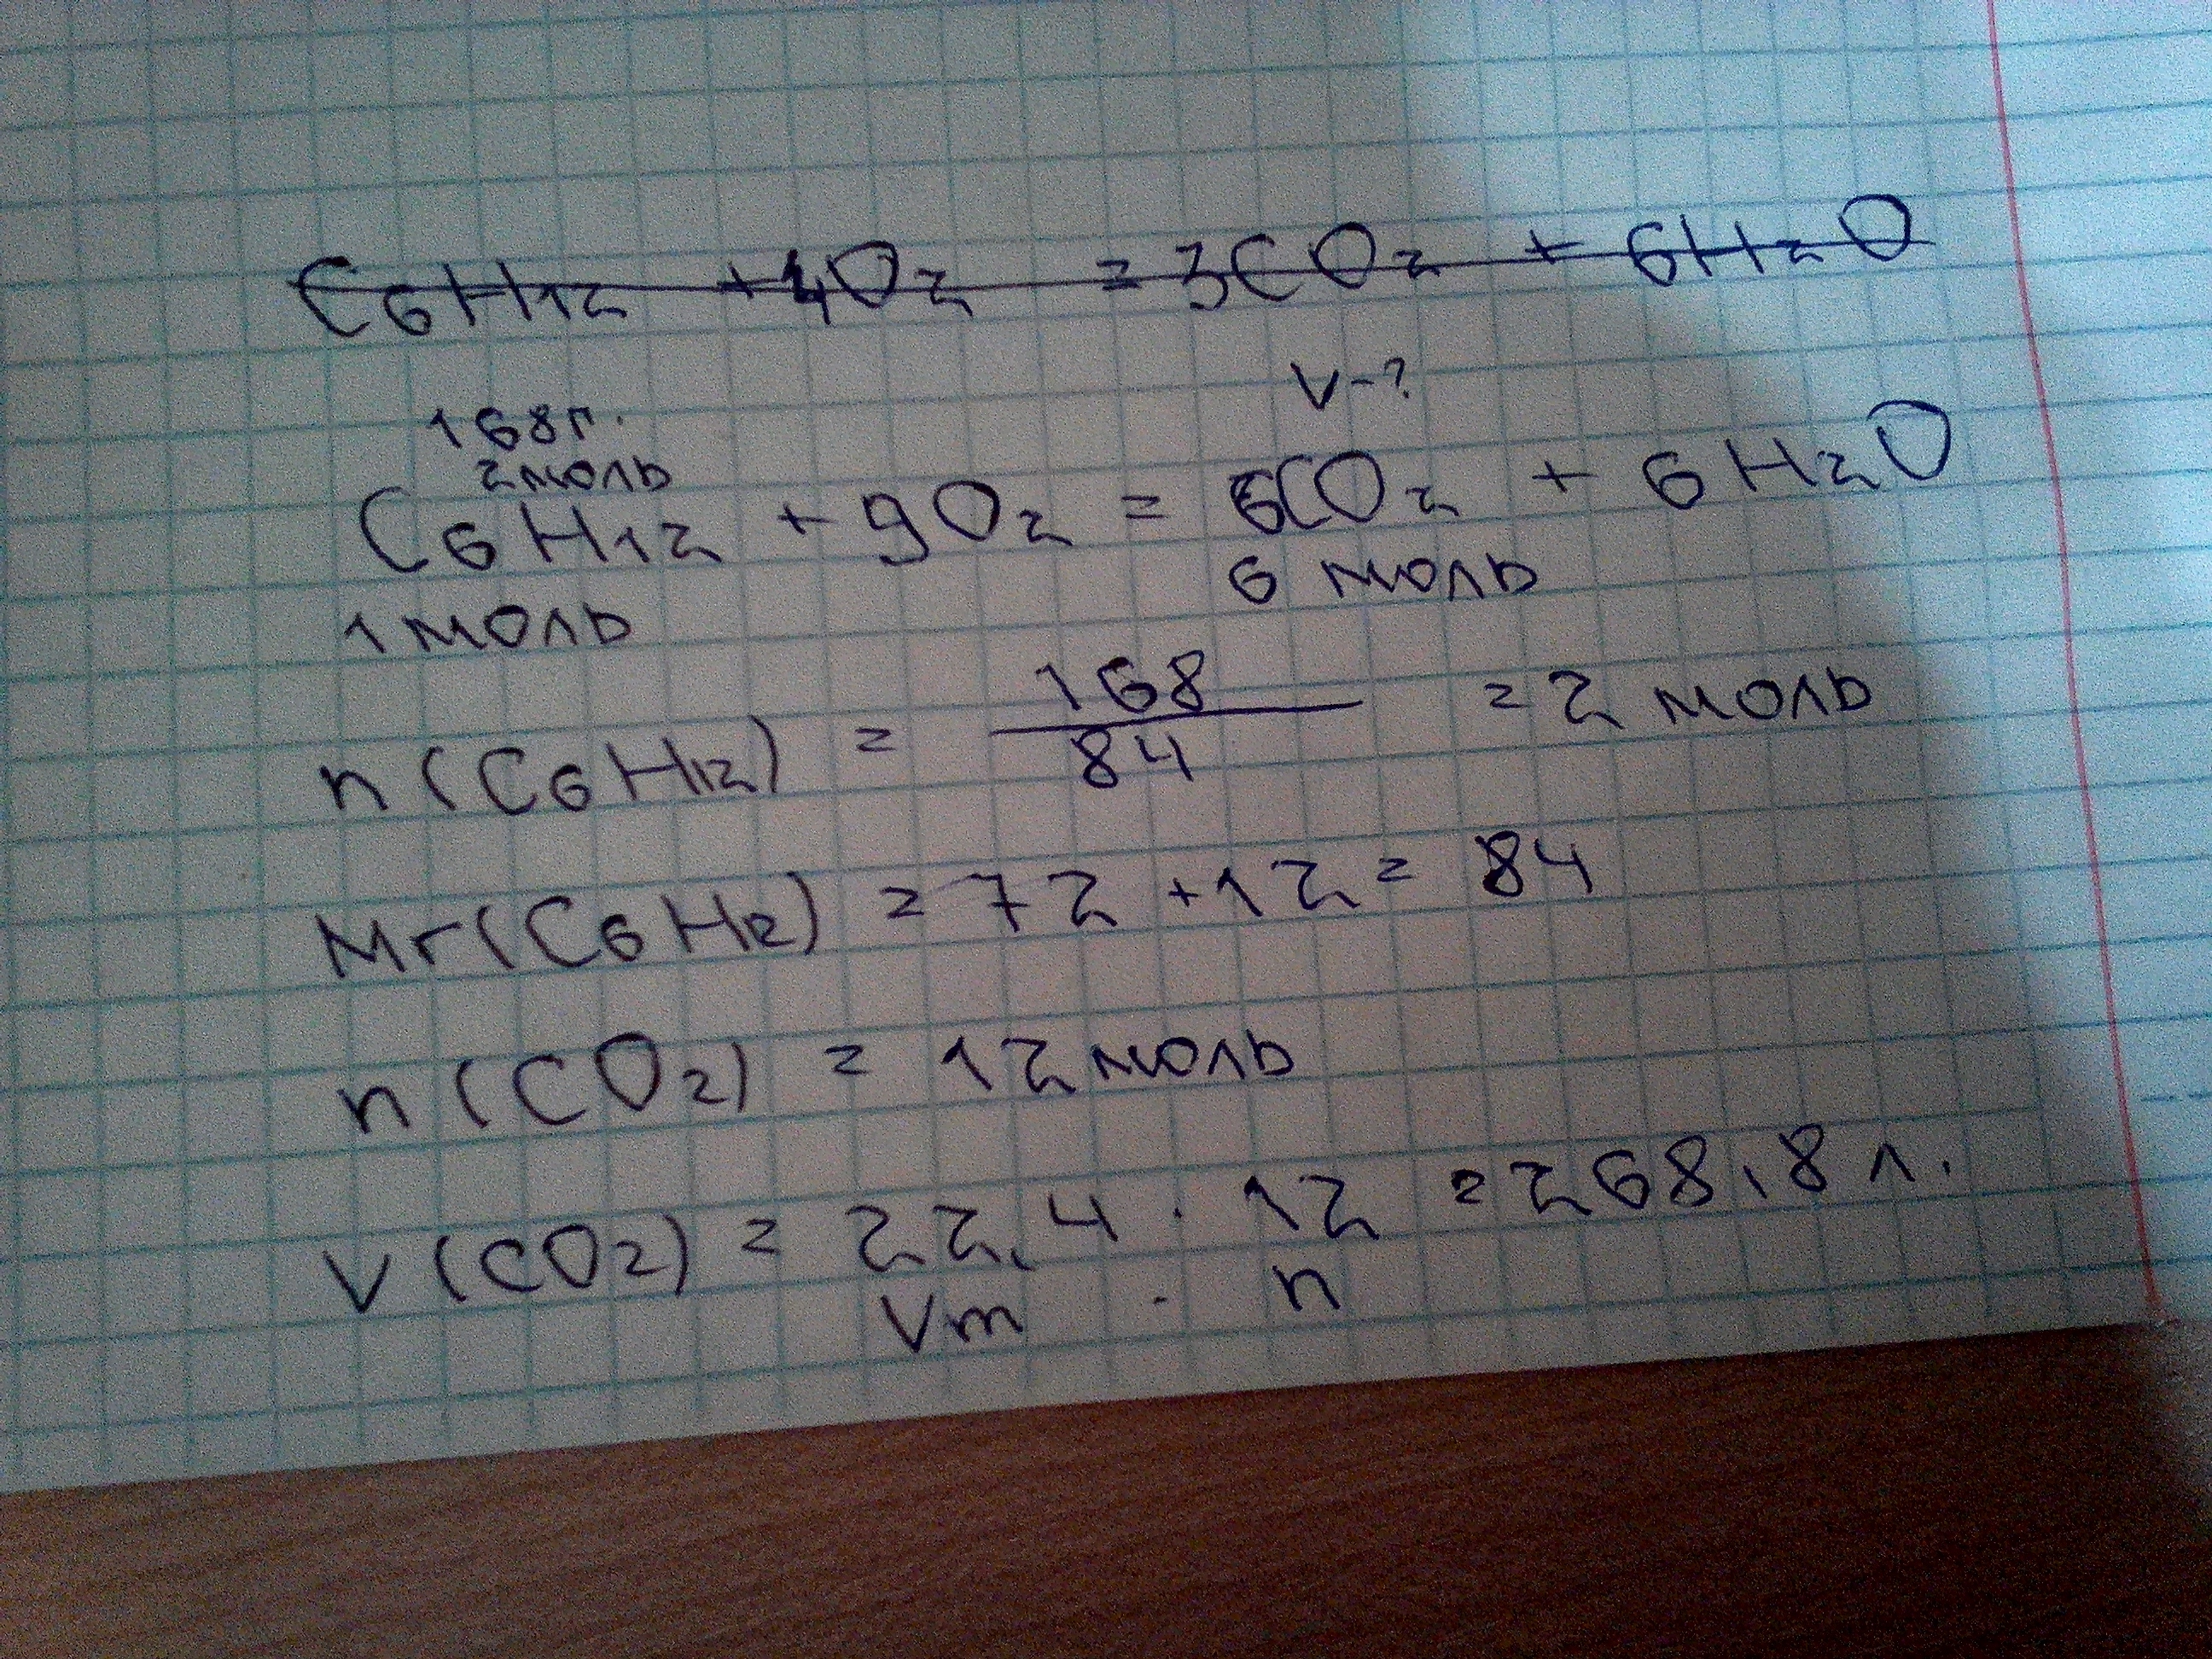 C6H12 + 4O2 = 3CO2 + 6H2O
V-?
168г.
2моль
C6H12 + 9O2 = 6CO2 + 6H2O
1 моль 6 моль
n(C6H12) = 168/84 = 2 моль
Mr(C6H12) = 72 + 12 = 84
n(CO2) = 12 моль
V(CO2) = 22,4 · 12 = 268,8 л.
Vm · n